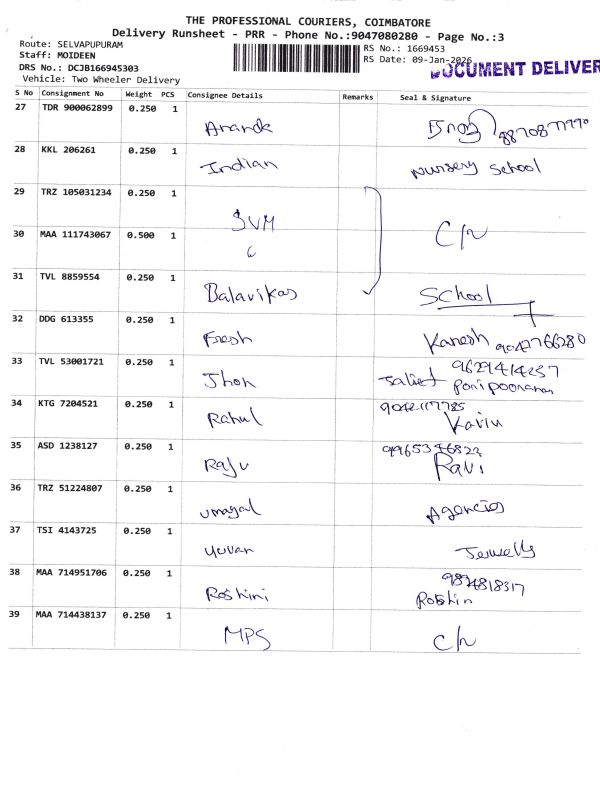 THE PROFESSIONAL COURIERS, COIMBATORE
Delivery Runsheet - PRR - Phone No.:9047080280 - Page No.:3
Route: SELVAPUPURAM
Staff: MOIDEEN
DRS No.: DCJB166945303
Vehicle: Two Wheeler Delivery
RS No.: 1669453
RS Date: 09-Jan-2026
DOCUMENT DELIVER
S No Consignment No Weight PCS Consignee Details Remarks Seal & Signature
27 TDR 900062899 0.250 1 Anandk
28 KKL 206261 0.250 1 Indian Nursery School
29 TRZ 105031234 0.250 1 SVM C/n
30 MAA 111743067 0.500 1
31 TVL 8859554 0.250 1 Balavikas School
32 DDG 613355 0.250 1 Fresh Kanesh 9047766280
33 TVL 53001721 0.250 1 Jhon 9629414257
34 KTG 7204521 0.250 1 Rahul 9042117785 Kavin
35 ASD 1238127 0.250 1 Raju 9965346822 Ravi
36 TRZ 51224807 0.250 1 umayal Agencies
37 TSI 4143725 0.250 1 Yuvan Jewells
38 MAA 714951706 0.250 1 Roshini Roshin
39 MAA 714438137 0.250 1 MPS C/n